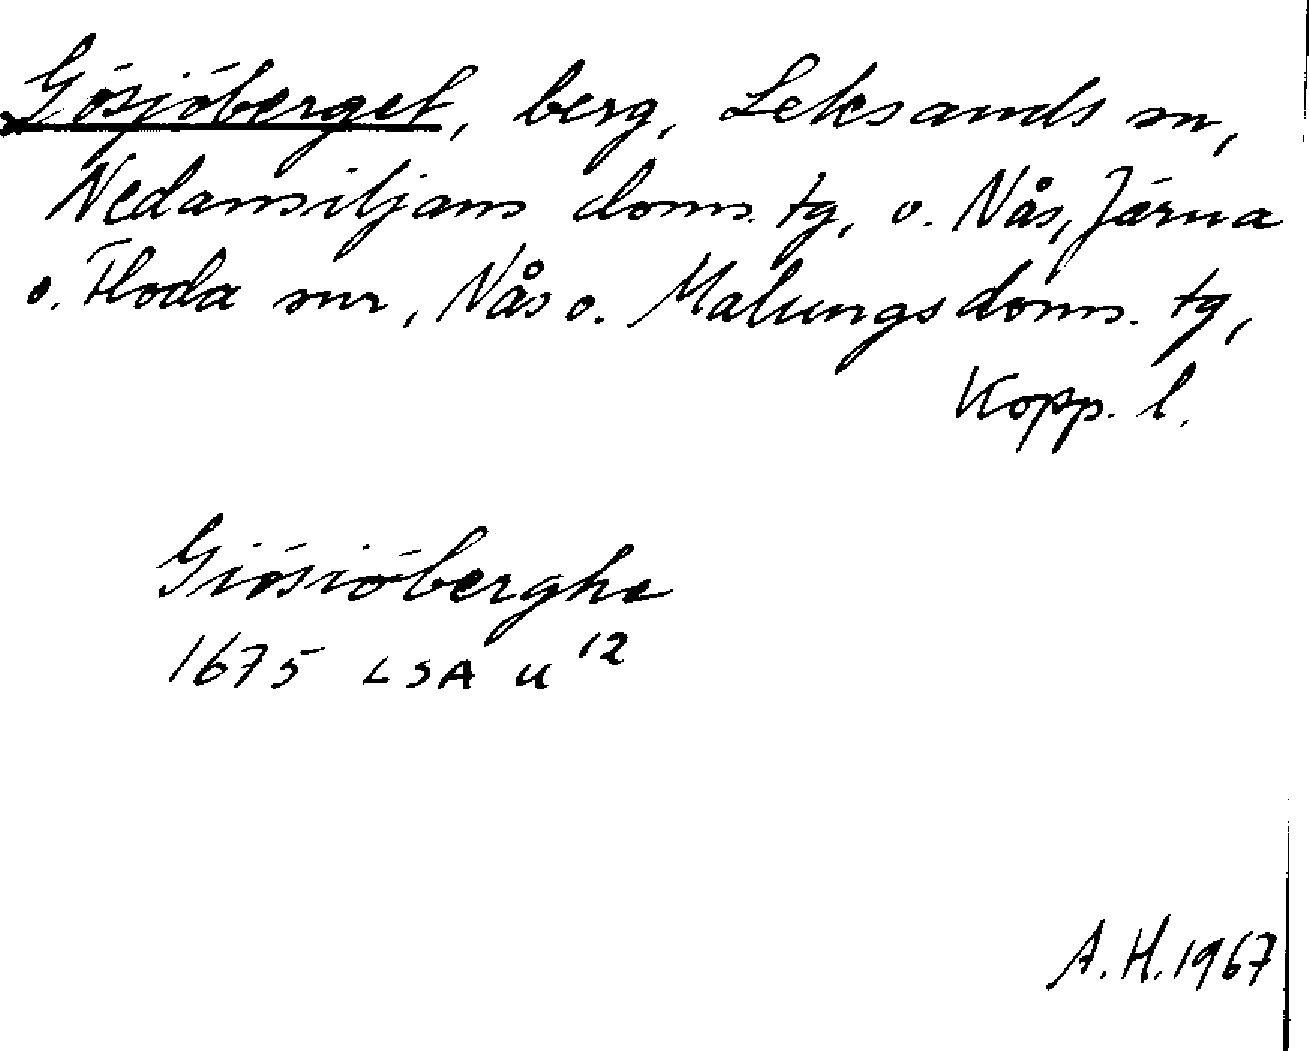 Gösjöberget, berg, Leksands sn,
Nedansiljans doms. tg, o. Nås, Järna
o. Floda snr, Nås o. Malungs doms. tg,
Kopp. l.
Giösiöberghe
1675 LSA U 12
A. H. 1967